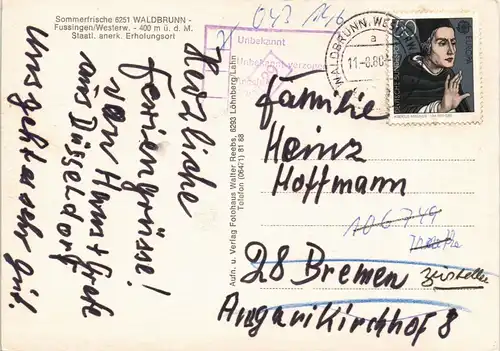 Sommerfrische 6251 WALDBRUNN -
Fussingen/Westerw. - 400 m ü. d. M.
Staatl. anerk. Erholungsort
Herzliche
Feriengrüsse!
von Hans + Grete
aus Düsseldorf
Uns geht es sehr gut.
Aufn. u. Verlag Fotohaus Walter Reebs, 6293 Löhnberg/Lahn
Telefon (06471) 81 88
043 146
Unbekannt
Unbekannt verzogen
WALDBRUNN, WESTERW
a
11-8.80
EUROPA
Familie
Heinz
Hoffmann
106749
28 Bremen
Angarikirchhof 8